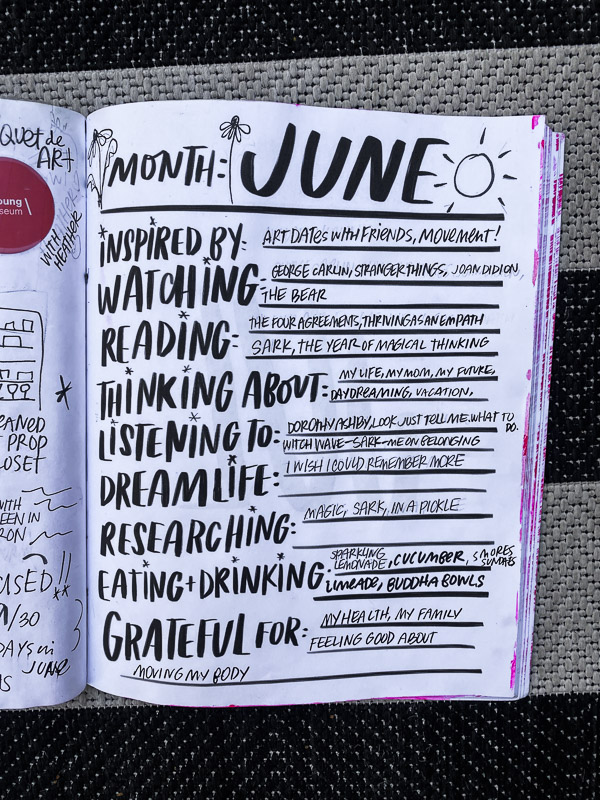 Quet de
ART
oung
seum \
WITH
HEATHER
EANED
PROP
LOSET
WITH
EEN IN
RON
USED!!
/30
DAYS in
JUNE
MONTH: JUNE
INSPIRED BY: ART DATES WITH FRIENDS, MOVEMENT!
WATCHING: GEORGE CARLIN, STRANGER THINGS, JOAN DIDION,
THE BEAR
READING: THE FOUR AGREEMENTS, THRIVING AS AN EMPATH
SARK, THE YEAR OF MAGICAL THINKING
THINKING ABOUT: MY LIFE, MY MOM, MY FUTURE,
DAYDREAMING, VACATION,
LISTENING TO: DOROTHY ASHBY, LOOK JUST TELL ME WHAT TO DO.
WITCH WAVE-SARK-ME ON BELONGING
DREAM LIFE: I WISH I COULD REMEMBER MORE
RESEARCHING: MAGIC, SARK, IN A PICKLE
EATING + DRINKING: SPARKLING LEMONADE, CUCUMBER, S'MORES SUNDAES
LIMEADE, BUDDHA BOWLS
GRATEFUL FOR: MY HEALTH, MY FAMILY
FEELING GOOD ABOUT
MOVING MY BODY